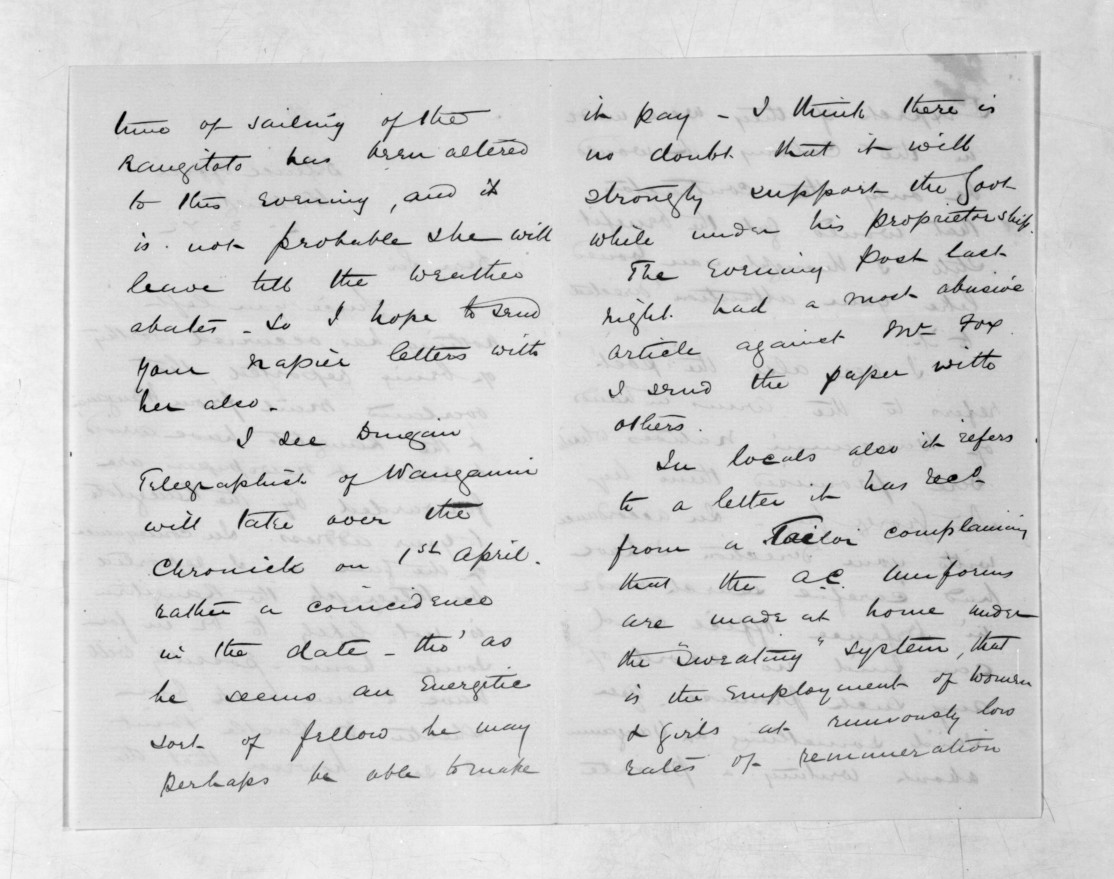 time of sailing of the
Rangitoto has been altered
to this evening, and it
is not probable she will
leave till the weather
abates - so I hope to send
your Napier letters with
her also.
I see Dungan
Telegraphist of Wanganui
will take over the
Chronicle on 1st April.
rather a coincidence
in the date - tho' as
he seems an Energetic
sort of fellow he may
perhaps be able to make
it pay - I think there is
no doubt that it will
strongly support the Govt
while under his proprietorship.
The Evening Post last
night had a most abusive
article against Mr Fox.
I send the paper with
others.
In locals also it refers
to a letter it has recd
from a Tailor complaining
that the A.C. uniforms
are made at home under
the "Sweating" system, that
is the Employment of women
& girls at ruinously low
rates of remuneration